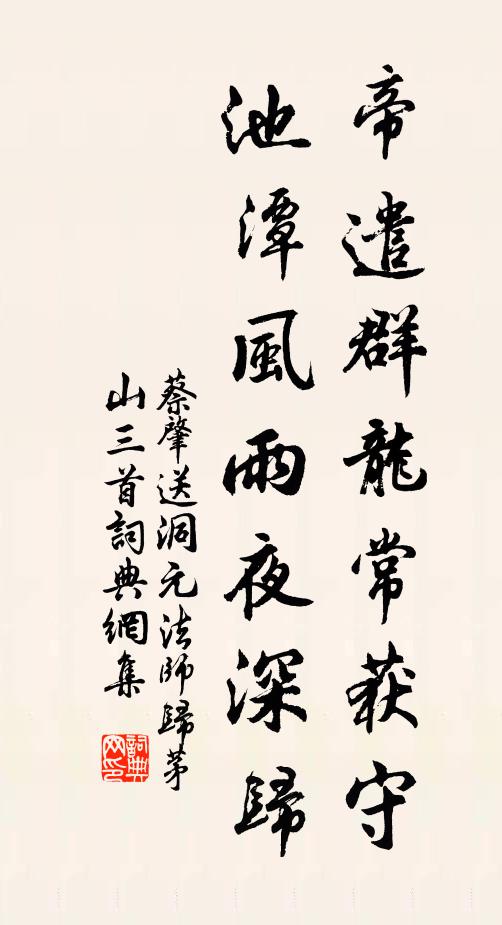 帝遣群龍常获守
池潭風雨夜深歸
蔡肇送洞元法師歸茅
山三首詞典網集
詞典
网印